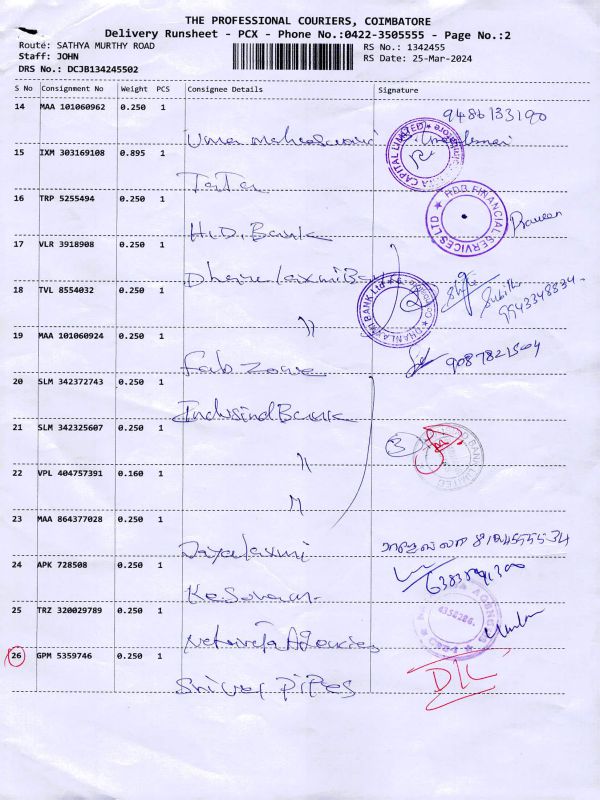 THE PROFESSIONAL COURIERS, COIMBATORE
Delivery Runsheet - PCX - Phone No.:0422-3505555 - Page No.:2
Route: SATHYA MURTHY ROAD
RS No.: 1342455
Staff: JOHN
RS Date: 25-Mar-2024
DRS No.: DCJB134245502
S No Consignment No Weight PCS Consignee Details Signature
14 MAA 101060962 0.250 1
9486133190
Uma
15 IXM 303169108 0.895 1
CAPITAL LIMITED
TaTa
16 TRP 5255494 0.250 1
HDB FINANCIAL SERVICES LTD
Praveen
Bank
17 VLR 3918908 0.250 1
Bank
18 TVL 8554032 0.250 1
DHANLAXMI BANK Ltd
9943348334
"
19 MAA 101060924 0.250 1
9087821504
Fab Zone
20 SLM 342372743 0.250 1
IndusindBank
21 SLM 342325607 0.250 1
3
BANK LIMITED
"
22 VPL 404757391 0.160 1
"
23 MAA 864377028 0.250 1
Jayalaxmi
24 APK 728508 0.250 1
Kesavan
25 TRZ 320029789 0.250 1
AGENCIES
4358286
Agencies
26 GPM 5359746 0.250 1
D/L
Pipes